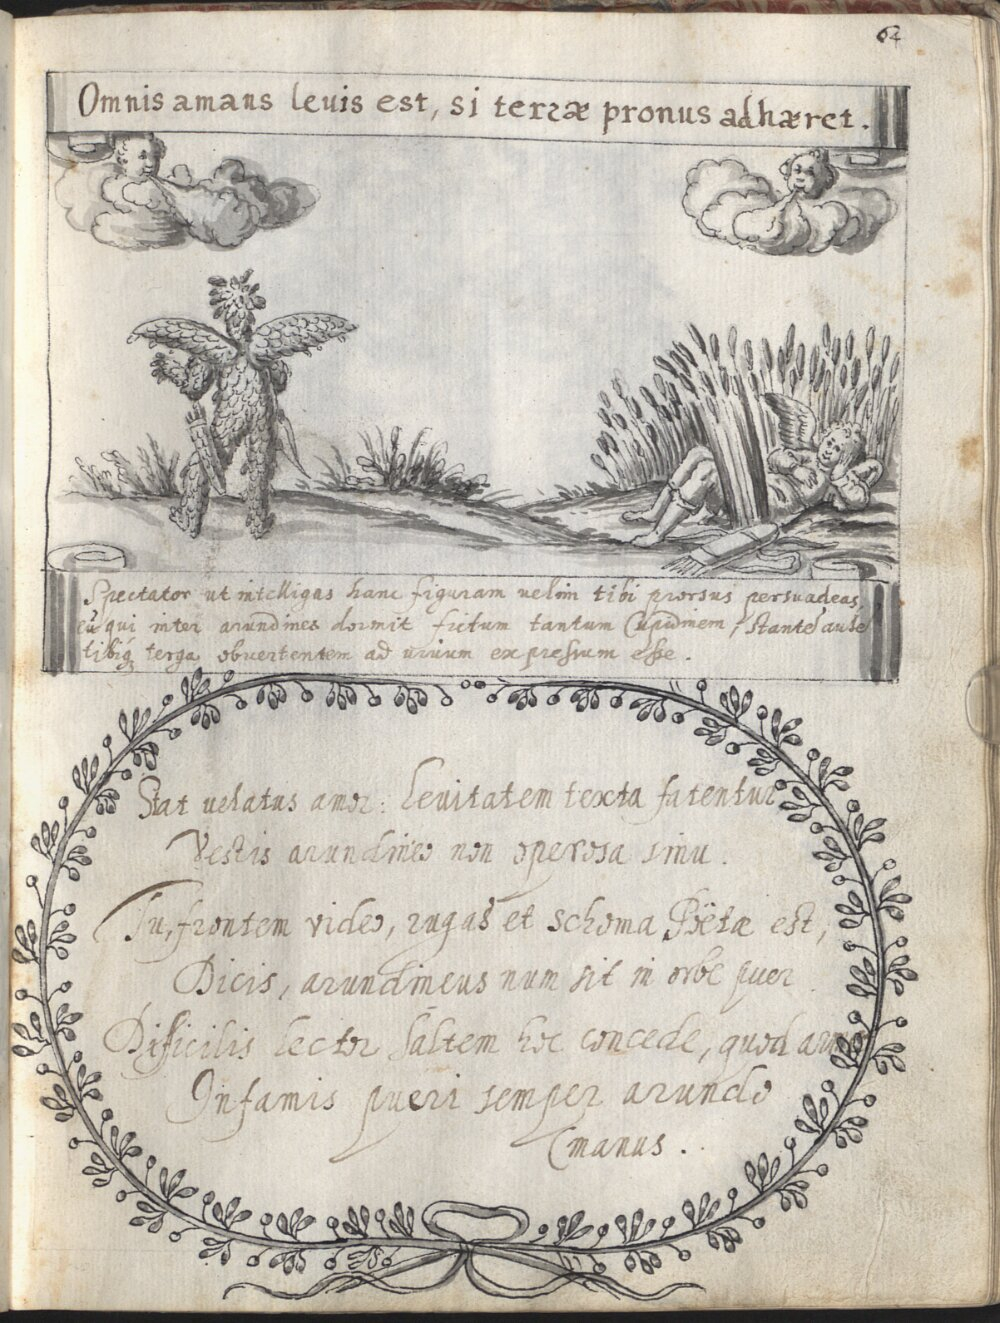 62
Omnis amans leuis est, si terræ pronus adhæret.
Spectator ut intelligas hanc figuram uelim tibi prorsus persuadeas,
eũ qui inter arundines dormit fictum tantum Cupidinem, Stantẽ
tibiq terga obuertentem ad uiuum expressum esse.
Stat uelatus amor: leuitatem texta fatentur
Vestis arundineo non operosa sinu.
Tu, frontem video, rugas et schoma Poëtæ est,
Dicis, arundineus num sit in orbe puer.
Difficilis lector saltem hoc concede, quod arma
Infamis pueri semper arundo
manus.